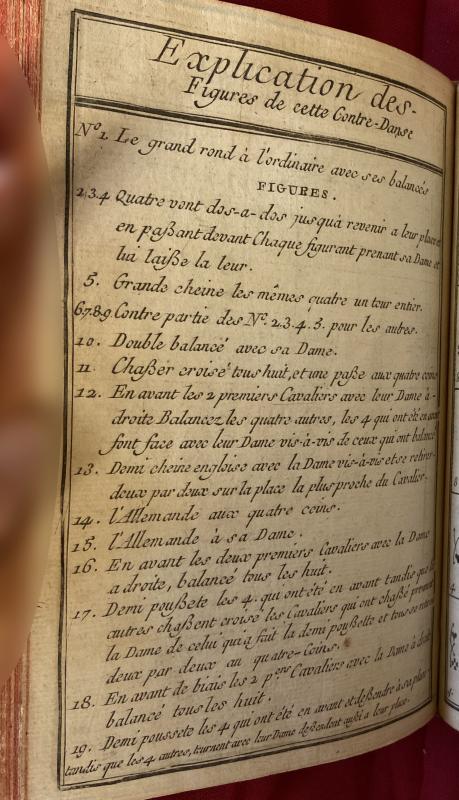 Explication des-
Figures de cette Contre-Danse
N.º 1. Le grand rond à l'ordinaire avec ses balancés
FIGURES.
2.3.4 Quatre vont dos-a-dos jusqu'à revenir a leur place et
en paßant devant Chaque figurant prenant sa Dame et
lui laiße la leur.
5. Grande cheine les mêmes quatre un tour entier.
6.7.8.9. Contre partie des Nº. 2.3.4.5. pour les autres.
10. Double balancé avec sa Dame.
11 Chaßer croisé tous huit, et une paße aux quatre coins
12. En avant les 2 premiers Cavaliers avec leur Dame à-
droite Balancez les quatre autres, les 4 qui ont été en avant
font face avec leur Dame vis-à-vis de ceux qui ont balancé
13. Demi cheine engloise avec la Dame vis-à-vis et se retirer
deux par deux sur la place la plus proche du Cavalier.
14. l'Allemande aux quatre coins.
15. l'Allemande à sa Dame.
16. En avant les deux premiers Cavaliers avec la Dame
a droite, balancé tous les huit.
17. Demi poußete les 4. qui ont été en avant tandis que les
autres chaßent croisé les Cavaliers qui ont chaßé prennent
la Dame de celui qui a fait la demi poußette et tous se retirent
deux par deux au quatre-Coins.
18. En avant de biais les 2 p.ers Cavaliers avec la Dame à droite
balancé tous les huit.
19. Demi poussete les 4 qui ont été en avant et deßendre à sa place
tandis que les 4 autres, tournent avec leur Dame deßendent außi a leur place.